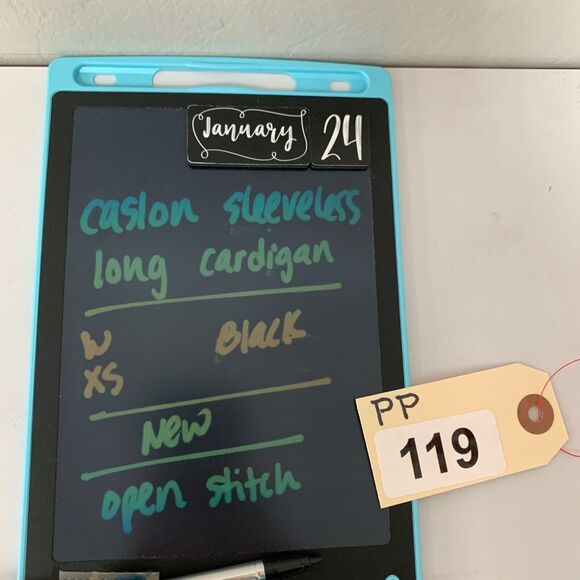 January 24
caslon sleeveless
long cardigan
W Black
XS
New
open stitch
PP
119